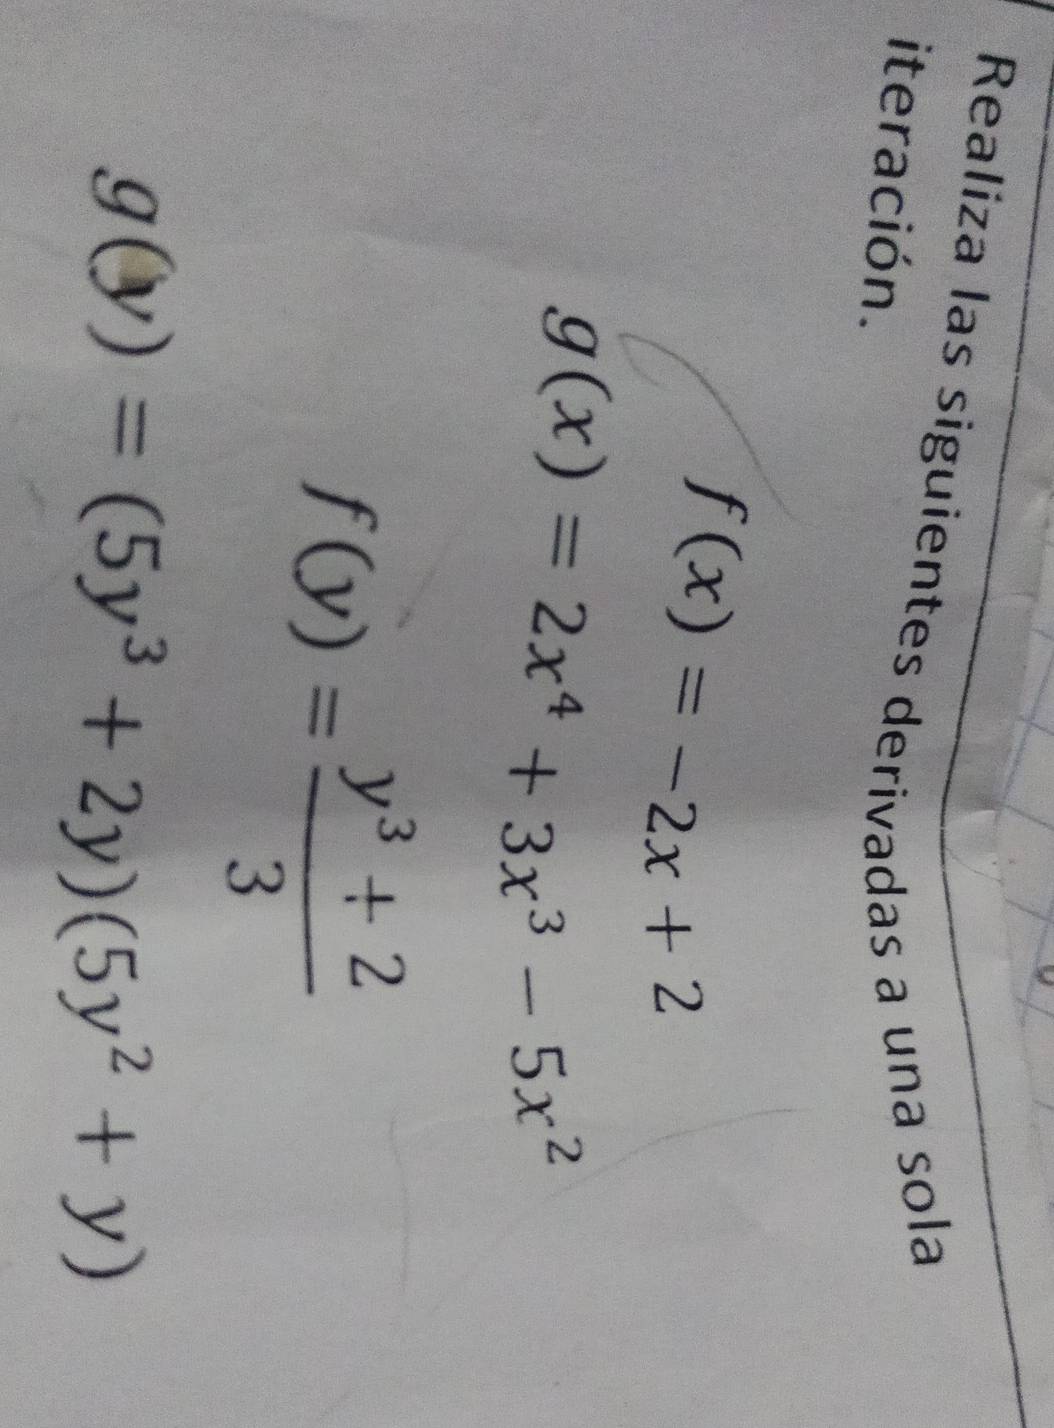 Realiza las siguientes derivadas a una sola
iteración.
f(x) = −2x + 2
g(x) = 2x⁴ + 3x³ − 5x²
f(y) = (y³ + 2)/3
g(y) = (5y³ + 2y)(5y² + y)